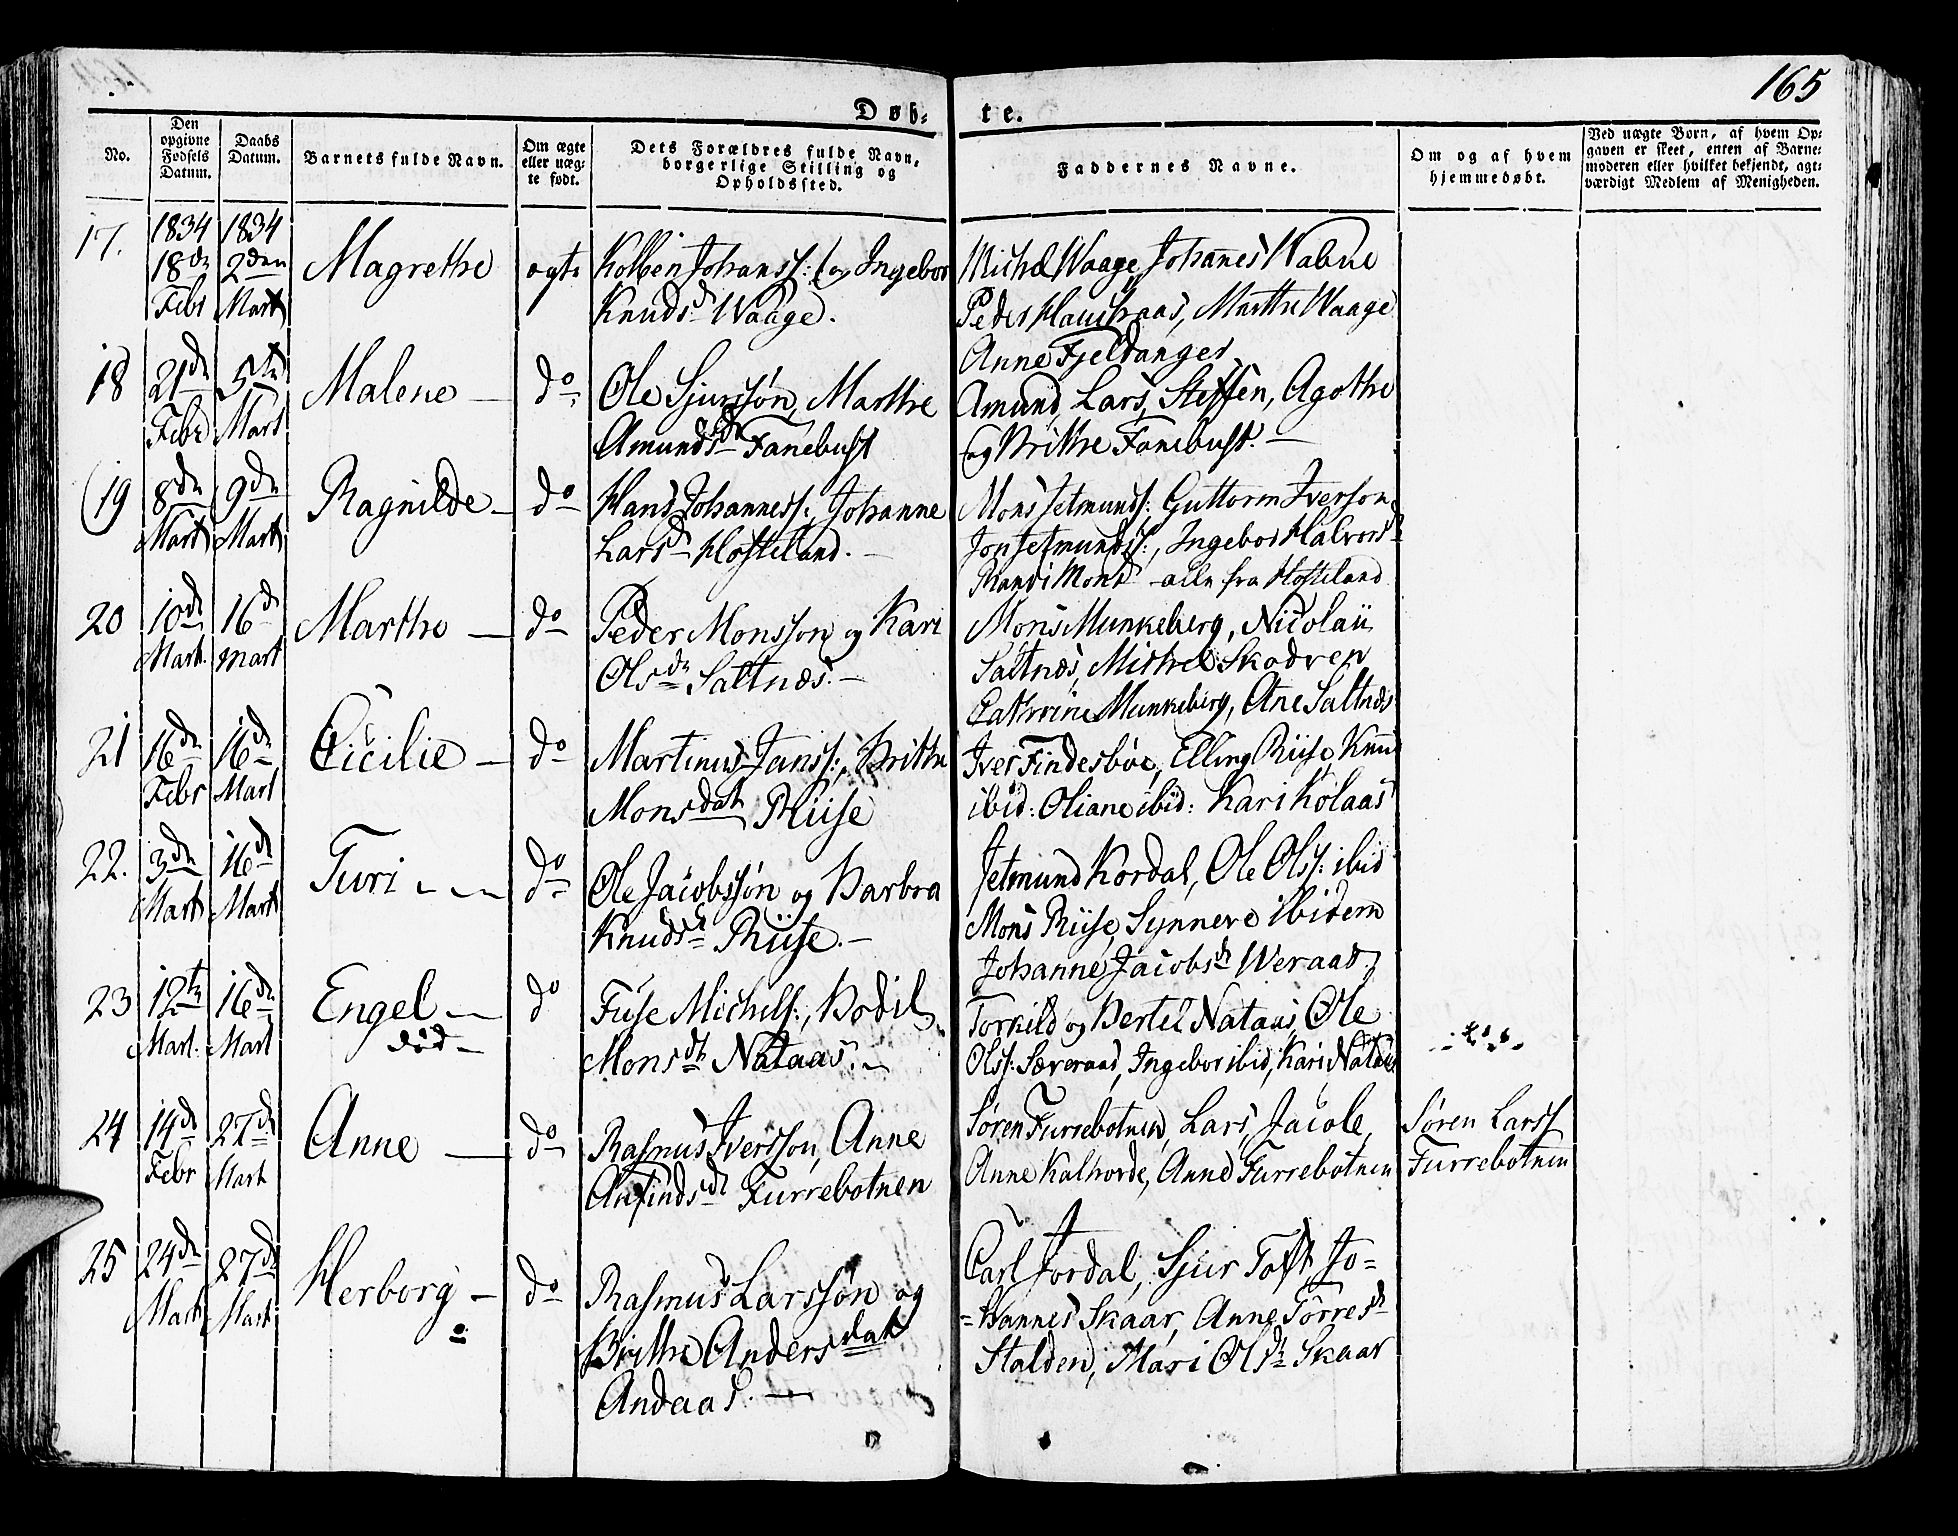 165
Døb-
te.
No.
Den opgivne Fødsels Datum.
Daabs Datum.
Barnets fulde Navn.
Om ægte eller uægte født.
Dets Forældres fulde Navn, borgerlige Stilling og Opholdssted.
Faddernes Navne.
Om og af hvem hjemmedøbt.
Ved uægte Børn, af hvem Opgaven er skeet, enten af Barnemoderen eller hvilket bekjendt, agtværdigt Medlem af Menigheden.
17.
1834 18de Febr
1834 2den Mart
Magrethe
ægte
Kolben Johanss: og Ingebor
Knudsd Waage.
Michel Waage, Johannes
Peder Haukaas, Marthe Waage
Anne Fjeldanger
18
21de Febr
5te Mart
Malene
do
Ole Sjurssøn, Marthe
Amundsd Fanebust
Amund, Lars, Steffen, Agothe
og Brithe Fanebust.
19
8de Mart
9de Mart
Ragnilde
do
Hans Johanness:, Johanne
Larsd Hosteland.
Mons Jetmunds: Guttorm Iverson
Jon Jetmundss:, Ingebor Halvorsd
Randi Monsd alle fra Hosteland
20
10de Mart.
16de Mart
Marthe
do
Peder Monsson og Kari
Olsdr Saltnæs.
Mons Munkeberg, Nicolaii
Saltnæs, Michel Skodven
Cathrine Munkeberg, Ane Saltnæs
21
16de Febr
16de Mart
Cicilie
do
Martinus Janss:, Brithe
Monsdat Riise
Iver Findesbøe, Elling Riise, Knu
ibid: Oliane ibid: Kari Kolaas
22.
3de Mart
16de Mart
Turi
do
Ole Jacobssøn og Barbra
Knudsd Riise.
Jetmund Kordal, Ole Olss: ibid
Mons Riise, Synneve ibidem
Johanne Jacobsd Weraas
23
12te Mart.
16de Mart
Engel
død
do
Fuse Michels:, Bodil
Monsdt Nataas.
Torkild og Bertel Nataas, Ole
Olss: Sæveraas, Ingebor ibid, Kari Nataas
24
14de Febr
27de Mart
Anne
do
Rasmus Iversson, Anne
Anfindsdt Furrebotnen
Søren Furrebotnen, Lars, Jacole,
Anne Kalhovde, Anne Furrebotnen
Søren Larss
Furrebotnen
25
24de Mart
27de Mart
Herborg
do
Rasmus Larssøn og
Brithe Andersdat
Andaas.
Carl Jordal, Sjur Toft, Jo=
=hannes Skaar, Anne Torresd
Stalden, Mari Olsdr Skaar